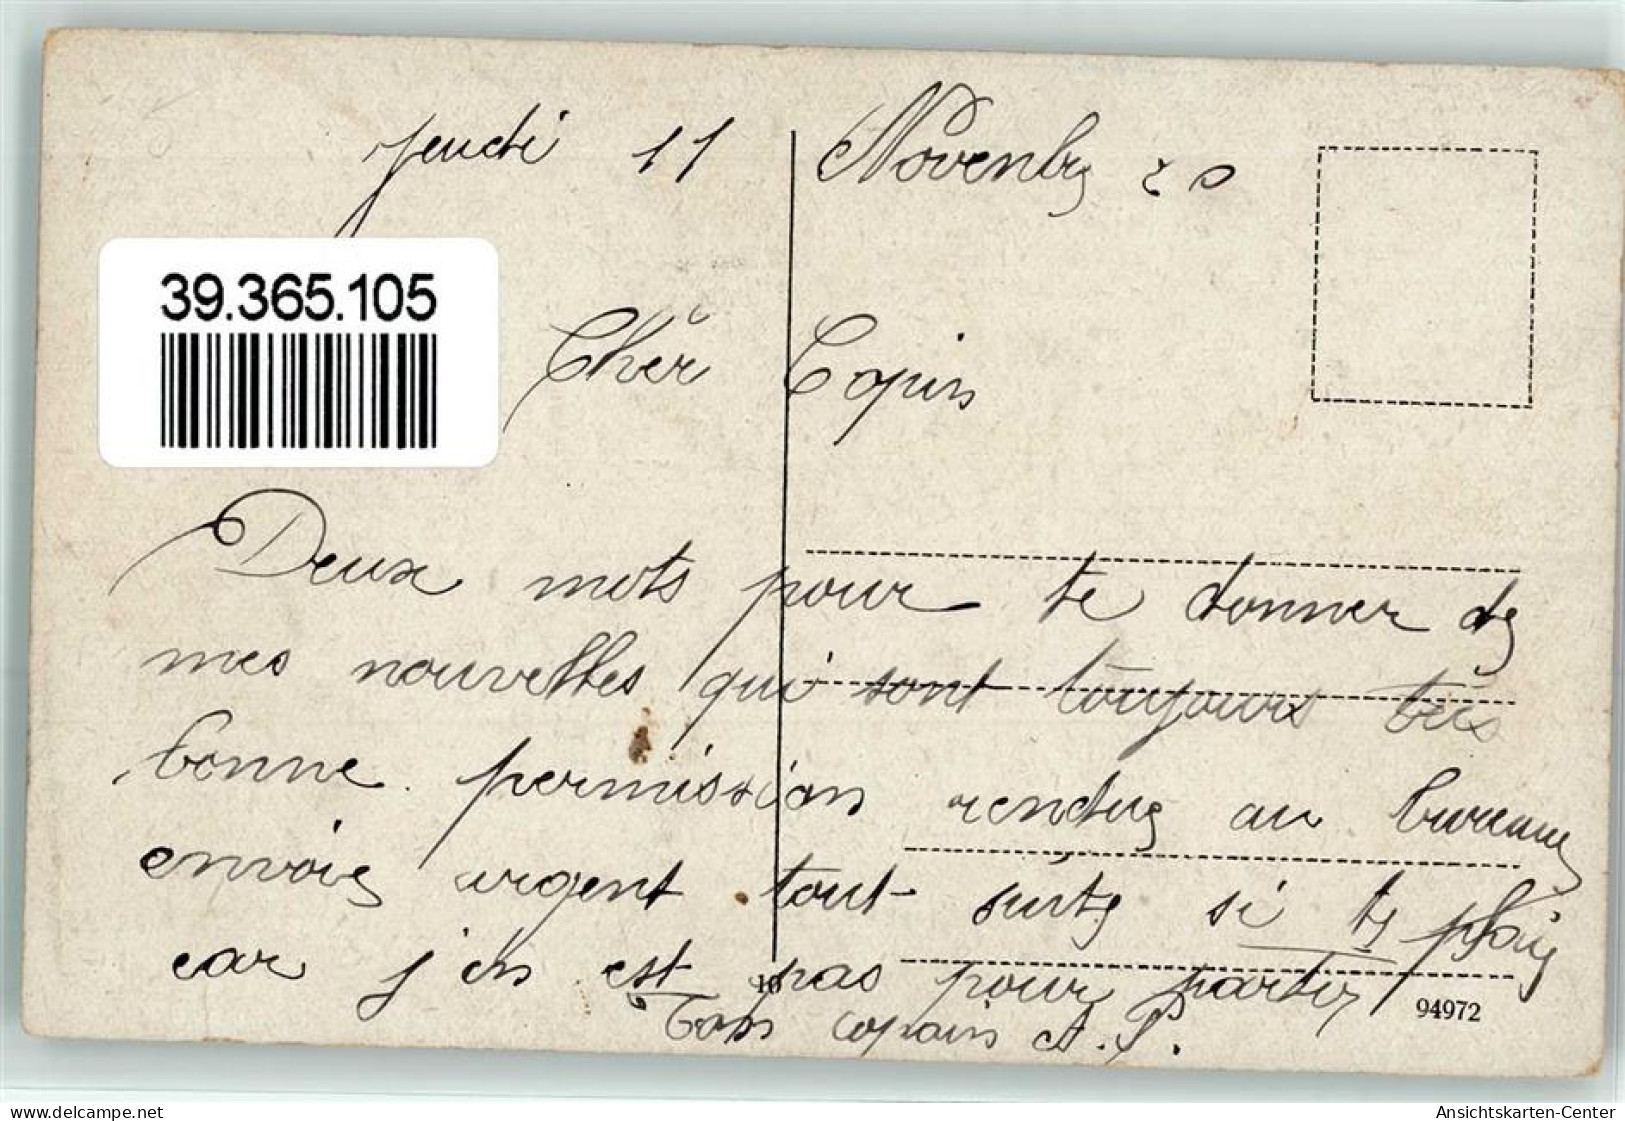 jeudi 11 Novembre 20
39.365.105
Cher Copin
Deux mots pour te donner de
mes nouvelles qui sont toujours très
bonne permission rendue au bureau
envoie urgent tout suite si te plais
car j'en est pas pour partir
10
94972
Ton copain A. P.
delcampe.net
Ansichtskarten-Center